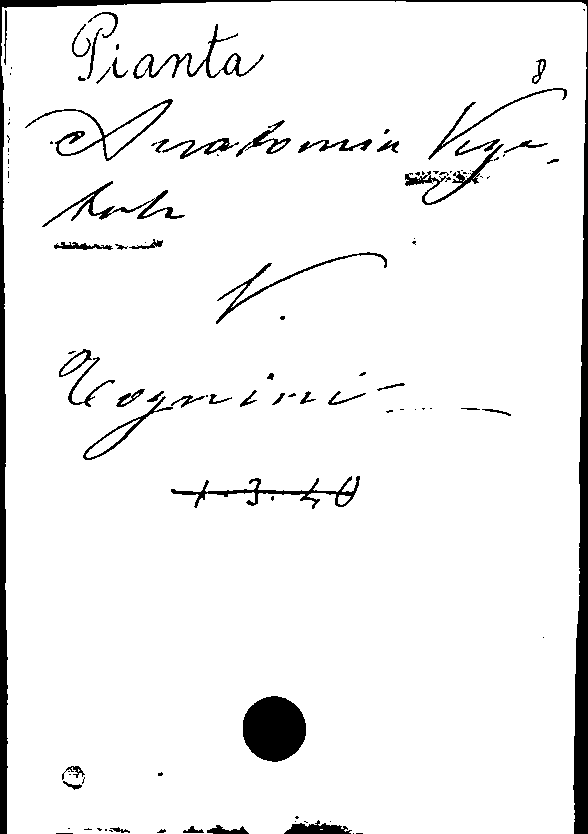 Pianta
8
Anatomia Vege-
tale
V.
Tognini
1.3.40